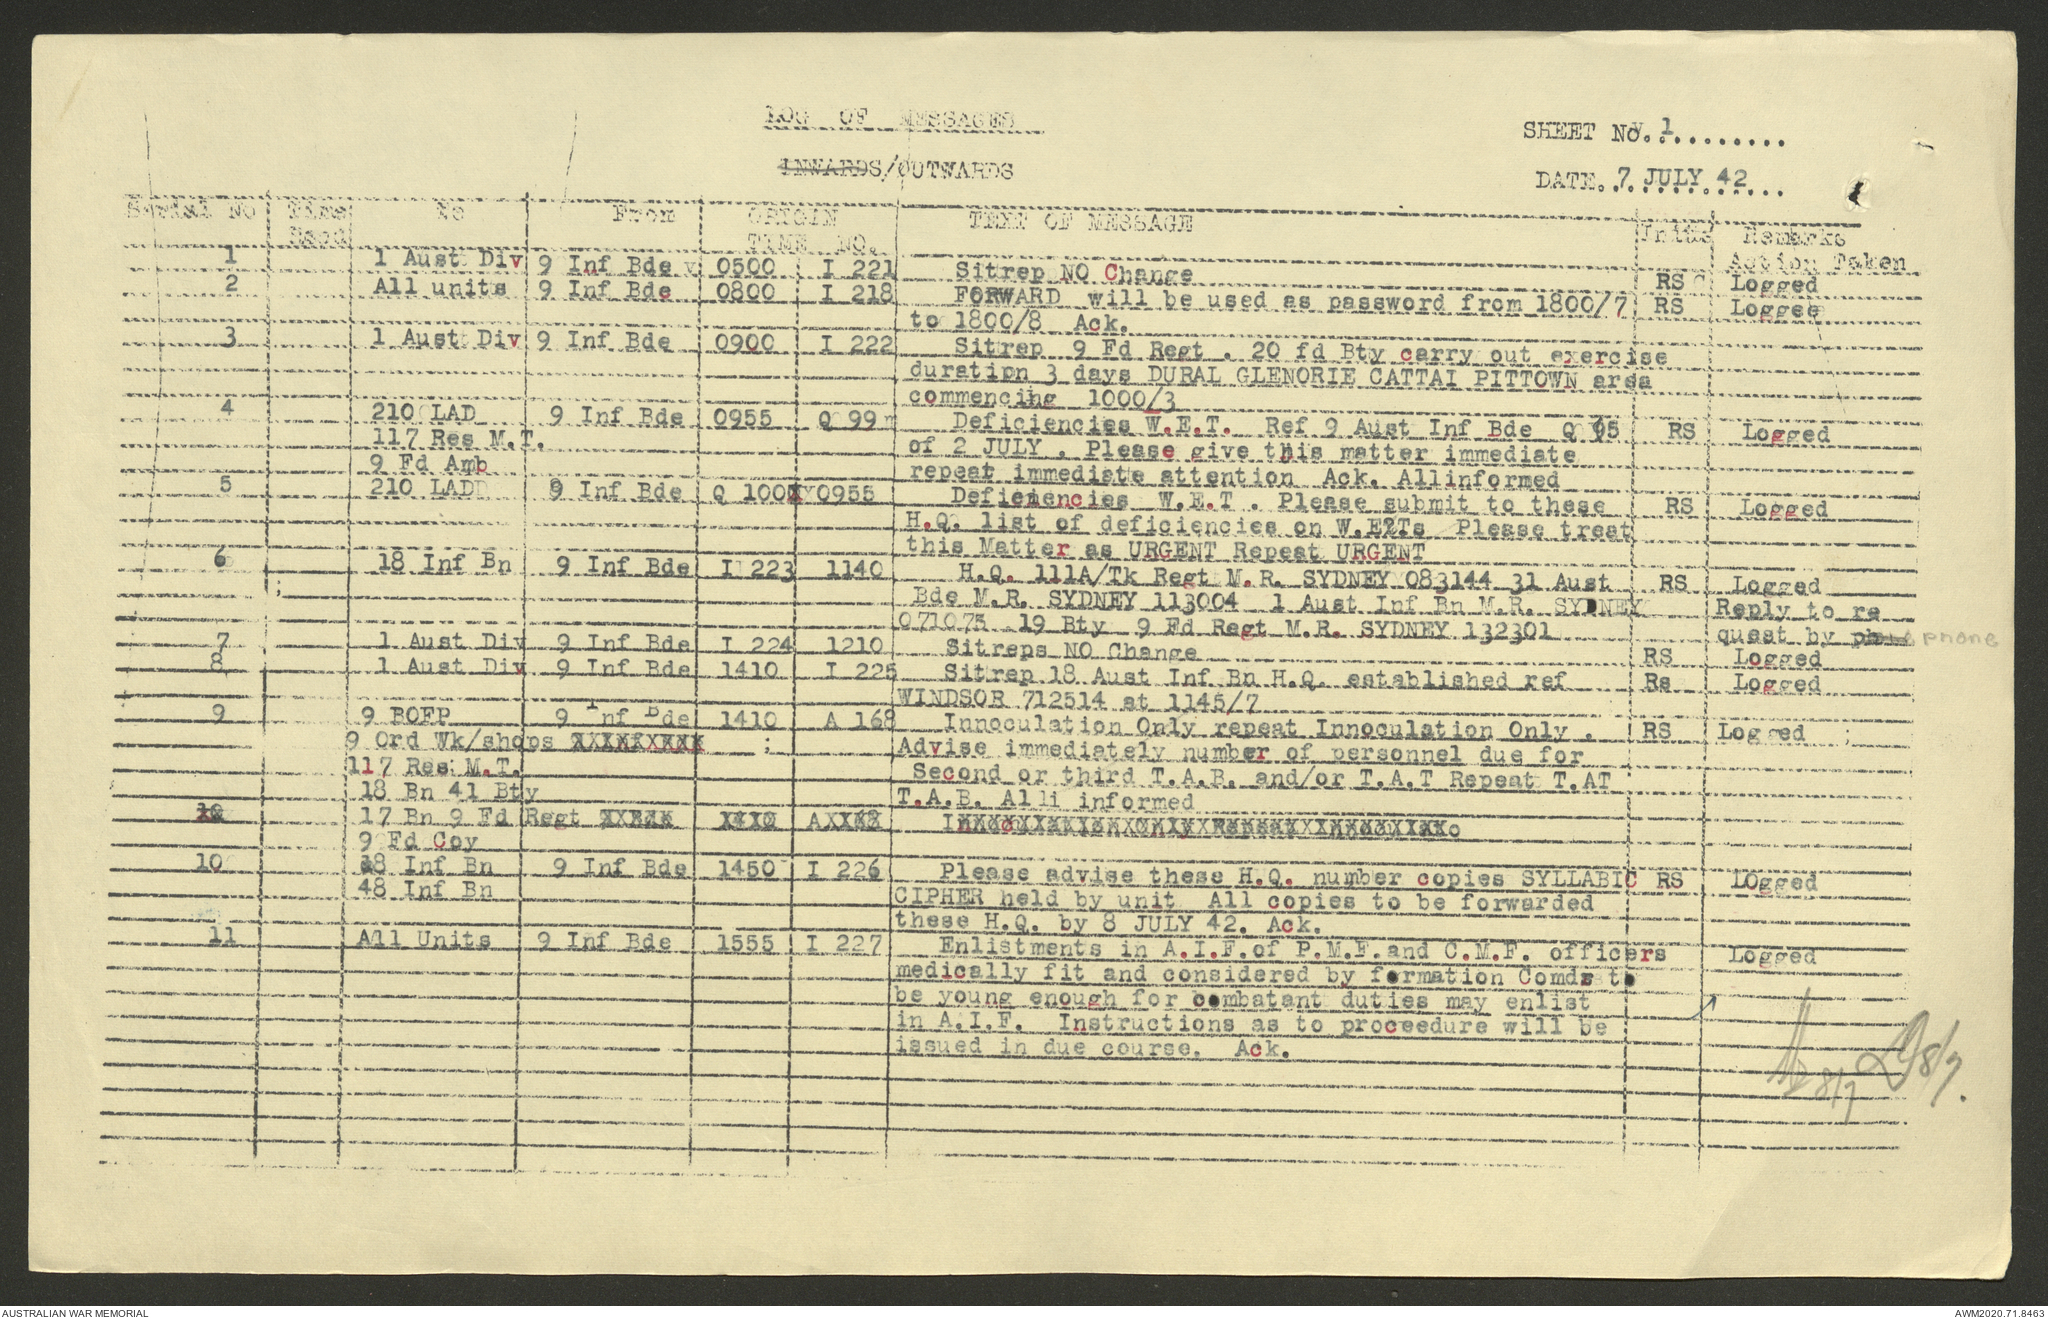 LOG OF MESSAGES
SHEET No. 1
INWARDS/OUTWARDS
DATE. 7 JULY 42
Serial No Time To From ORIGIN TEXT OF MESSAGE Units Remarks
Recd TIME NO. Action Taken
1 1 Aust Div 9 Inf Bde 0500 I 221 Sitrep NO Change RS Logged
2 All units 9 Inf Bde 0800 I 218 FORWARD will be used as password from 1800/7 RS Loggee
to 1800/8 Ack.
3 1 Aust Div 9 Inf Bde 0900 I 222 Sitrep 9 Fd Regt . 20 fd Bty carry out exercise
duration 3 days DURAL GLENORIE CATTAI PITTOWN area
commencing 1000/3
4 210 LAD 9 Inf Bde 0955 Q 99 Deficiencies W.E.T. Ref 9 Aust Inf Bde Q 95 RS Logged
117 Res M.T. of 2 JULY . Please give this matter immediate
9 Fd Amb repeat immediate attention Ack. Allinformed
5 210 LAD 9 Inf Bde Q 100 0955 Deficiencies W.E.T . Please submit to these RS Logged
H.Q. list of deficiencies on W.E.Ts Please treat
this Matter as URGENT Repeat URGENT
6 18 Inf Bn 9 Inf Bde I 223 1140 H.Q. 111A/Tk Regt M.R. SYDNEY 083144 31 Aust RS Logged
Bde M.R. SYDNEY 113004 1 Aust Inf Bn M.R. SYDNEY Reply to re
071075 19 Bty 9 Fd Regt M.R. SYDNEY 132301 quest by phone
7 1 Aust Div 9 Inf Bde I 224 1210 Sitreps NO Change RS Logged
8 1 Aust Div 9 Inf Bde 1410 I 225 Sitrep 18 Aust Inf Bn H.Q. established ref Rs Logged
WINDSOR 712514 at 1145/7
9 9 BOFP 9 Inf Bde 1410 A 168 Innoculation Only repeat Innoculation Only . RS Logged
9 Ord Wk/shops Advise immediately number of personnel due for
117 Res M.T. Second or third T.A.B. and/or T.A.T Repeat T.AT
18 Bn 41 Bty T.A.B. Alli informed
10 17 Bn 9 Fd Regt
9 Fd Coy
10 18 Inf Bn 9 Inf Bde 1450 I 226 Please advise these H.Q. number copies SYLLABIC RS LOgged
48 Inf Bn CIPHER held by unit All copies to be forwarded
these H.Q. by 8 JULY 42. Ack.
11 All Units 9 Inf Bde 1555 I 227 Enlistments in A.I.F.of P.M.F.and C.M.F. officers Logged
medically fit and considered by formation Comds to
be young enough for combatant duties may enlist
in A.I.F. Instructions as to proceedure will be
issued in due course. Ack.
8/7 8/7.
AUSTRALIAN WAR MEMORIAL AWM2020.71.8463